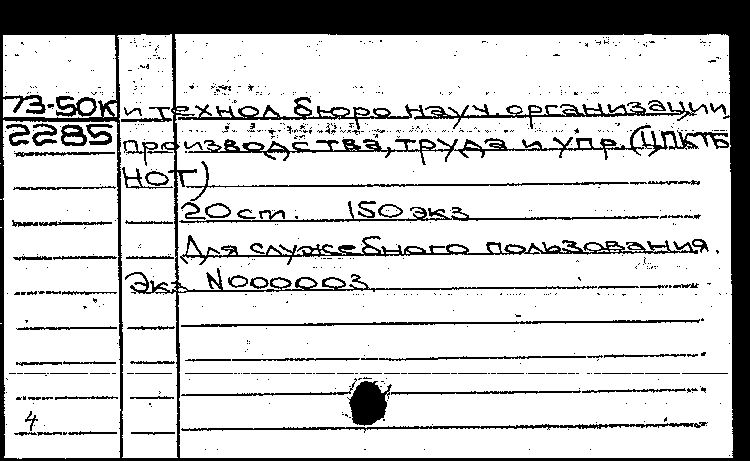 73-50к и технол бюро науч. организации
2285 производства, труда и упр. (ЦПКТБ
НОТ)
20 ст. 150 экз
Для служебного пользования.
Экз N000003
4